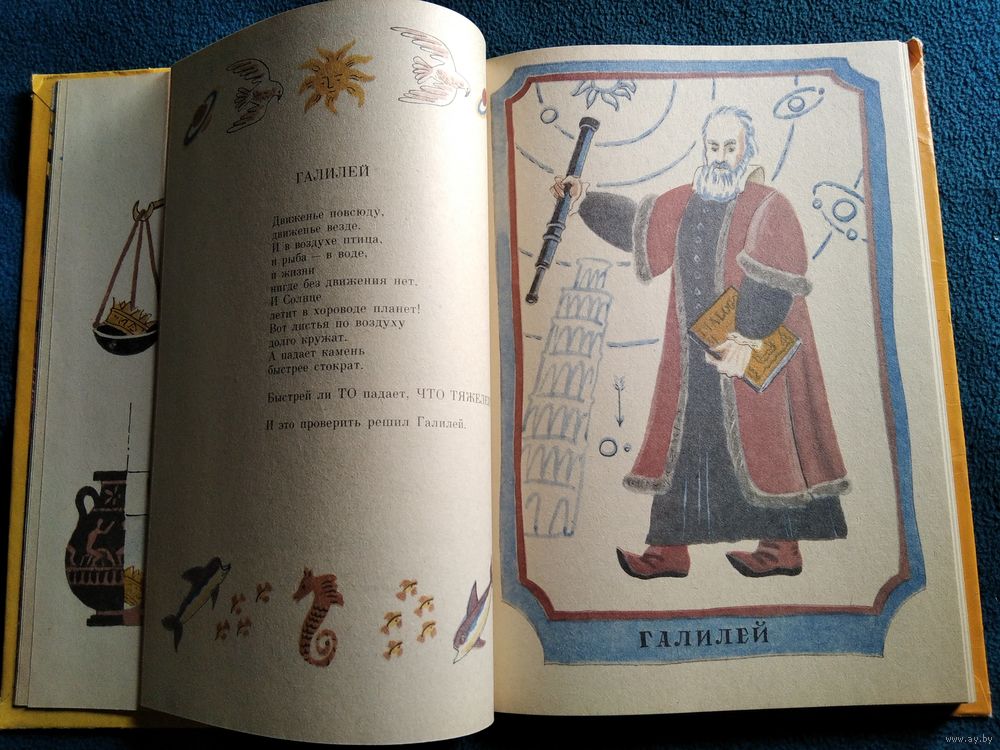 ГАЛИЛЕЙ
Движенье повсюду,
движенье везде.
И в воздухе птица,
и рыба — в воде,
и жизни
нигде без движения нет.
И Солнце
летит в хороводе планет!
Вот листья по воздуху
долго кружат.
А падает камень
быстрее стократ.
Быстрей ли ТО падает, ЧТО
И это проверить решил Галилей.
ГАЛИЛЕЙ
www.ay.by